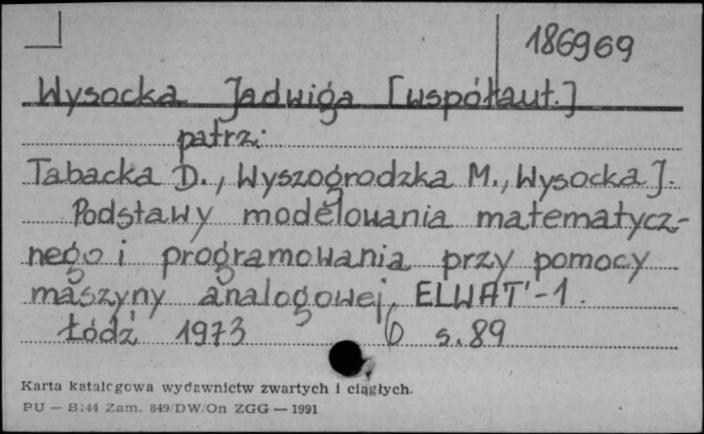 186969
Wysocka Jadwiga [współaut.]
patrz:
Tabacka D., Wyszogrodzka M., Wysocka J.
Podstawy modelowania matematycz-
nego i programowania przy pomocy
maszyny analogowej ELWAT-1.
Łódź 1973 s. 89
Karta katalogowa wydawnictw zwartych i ciągłych.
PU — B144 Zam. 849/DW/On ZGG — 1991